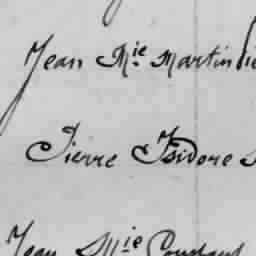 Jean Mie Martin
Pierre Isidore
Jean Mie